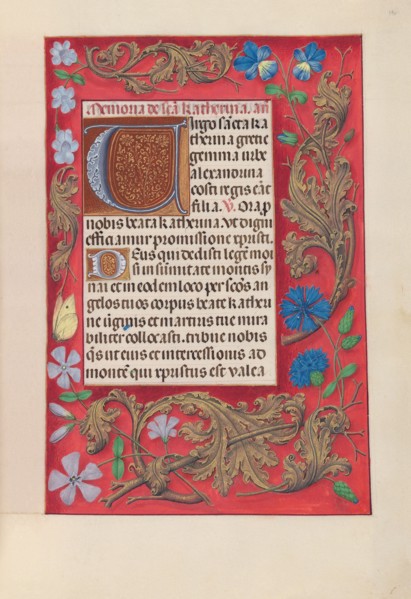 Memoria de scā Katherina. an
Uirgo sācta ka
therina grecie
gemma urbe
alexandrina
costi regis erāt
filia. V. Ora p
nobis beata katherina. Vt digni
efficiamur promissione xpristi.
Deus qui dedisti legē moi
si in sūmitate montis sy
nai et in eodem loco per scōs an
gelos tuos corpus beate kathri
ne ūginis et martiris tue mira
biliter collocasti. tribue nobis
q̄s ut eius et intercessionis ad
montē qui xpristus est valea